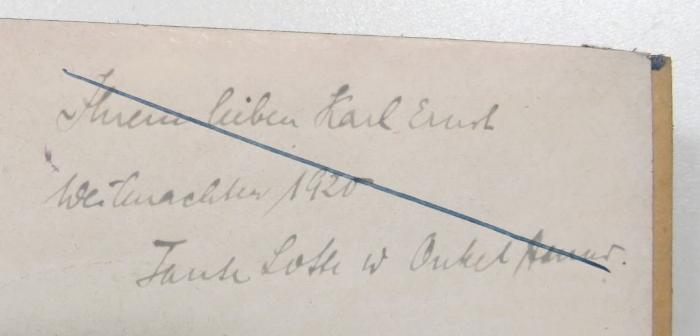 Ihrem lieben Karl Ernst
Weihnachten 1920
Tante Lotte u Onkel